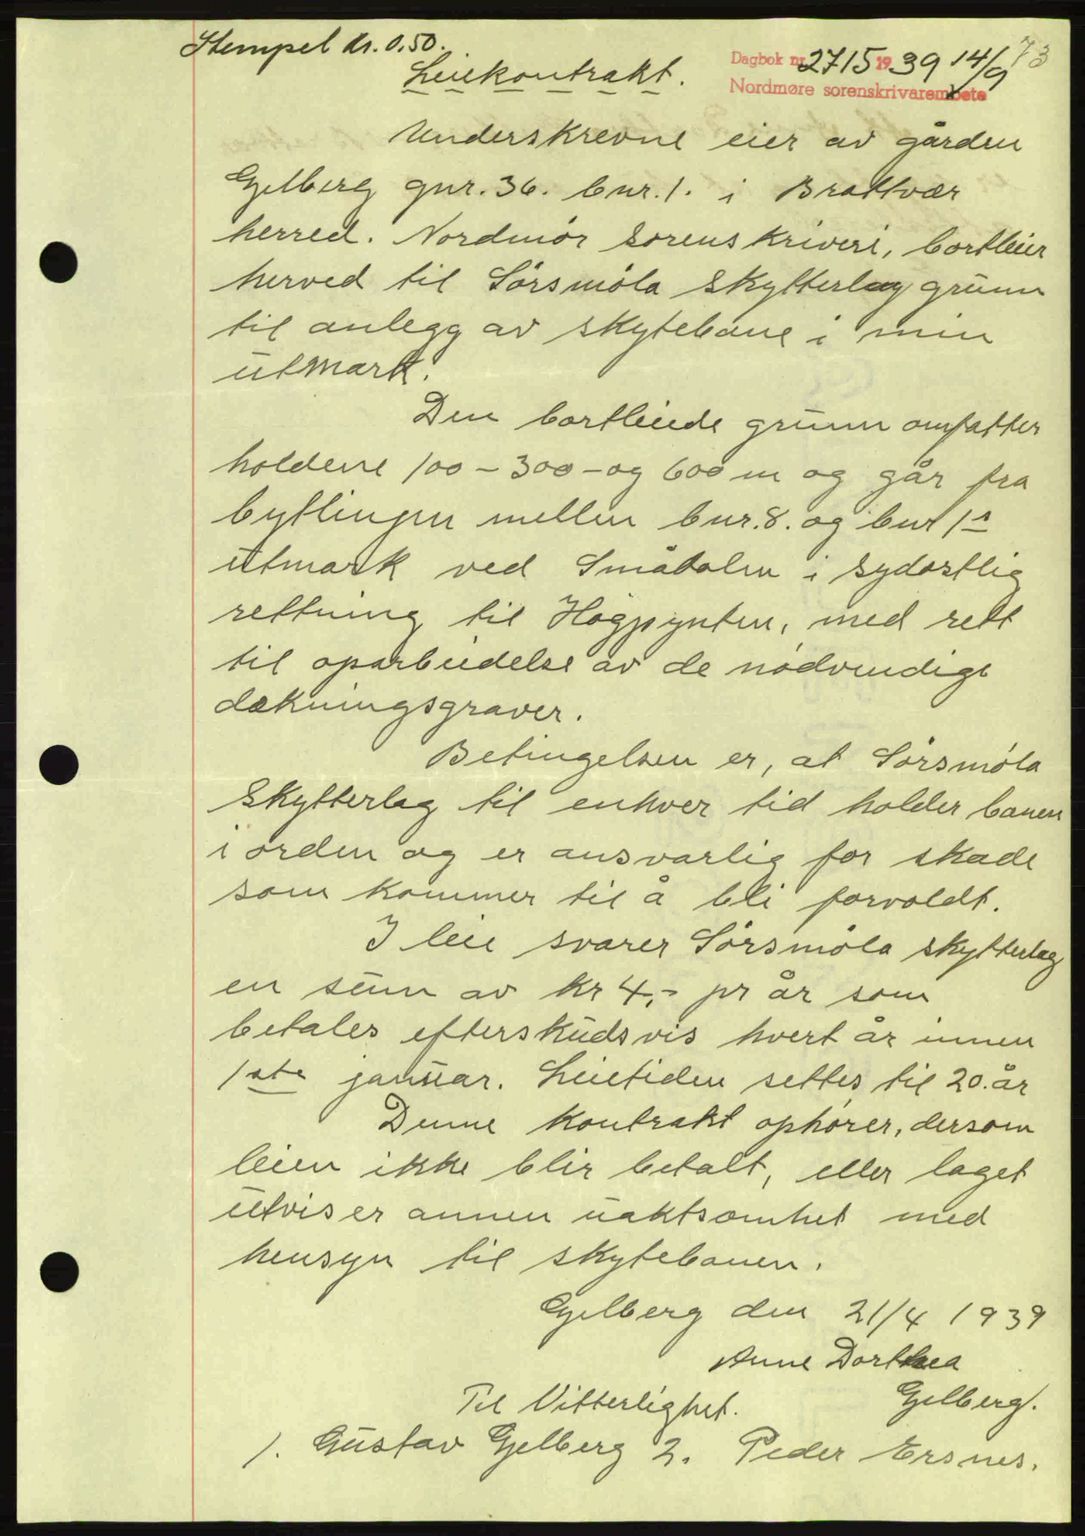 Stempel kr. 0,50.
73
Dagbok nr. 2715 1939 14/9
Nordmøre sorenskrivarembete
Leiekontrakt.
Underskrevne eier av gården
Gjelberg gnr. 36. bnr. 1. i Brattvær
herred. Nordmør sorenskriveri, bortleier
herved til Sørsmøla Skytterlag grunn
til anlegg av skytebane i min
utmark.
Den bortleiede grunn omfatter
holdene 100 - 300 - og 600 m og går fra
bytlinjen mellem bnr. 8. og bnr 1s
utmark ved Smådalen i sydøstlig
rettning til Høgpynten, med rett
til oparbeidelse av de nødvendige
dekningsgraver.
Betingelsen er, at Sørsmøla
Skytterlag til enhver tid holder banen
i orden og er ansvarlig for skade
som kommer til å bli forvoldt.
I leie svarer Sørsmøla skytterlag
en sum av kr 4,- pr år som
betales efterskudsvis hvert år innen
1ste januar. Leietiden settes til 20. år
Denne kontrakt ophører, dersom
leien ikke blir betalt, eller laget
utviser annen uaktsomhet med
hensyn til skytebanen.
Gjelberg den 21/4 1939
Anne Dorthea
Gjelberg.
Til Vitterlighet.
1. Gustav Gjelberg 2. Peder Ersnes.